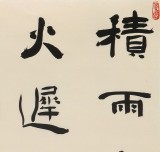 積雨
火遲